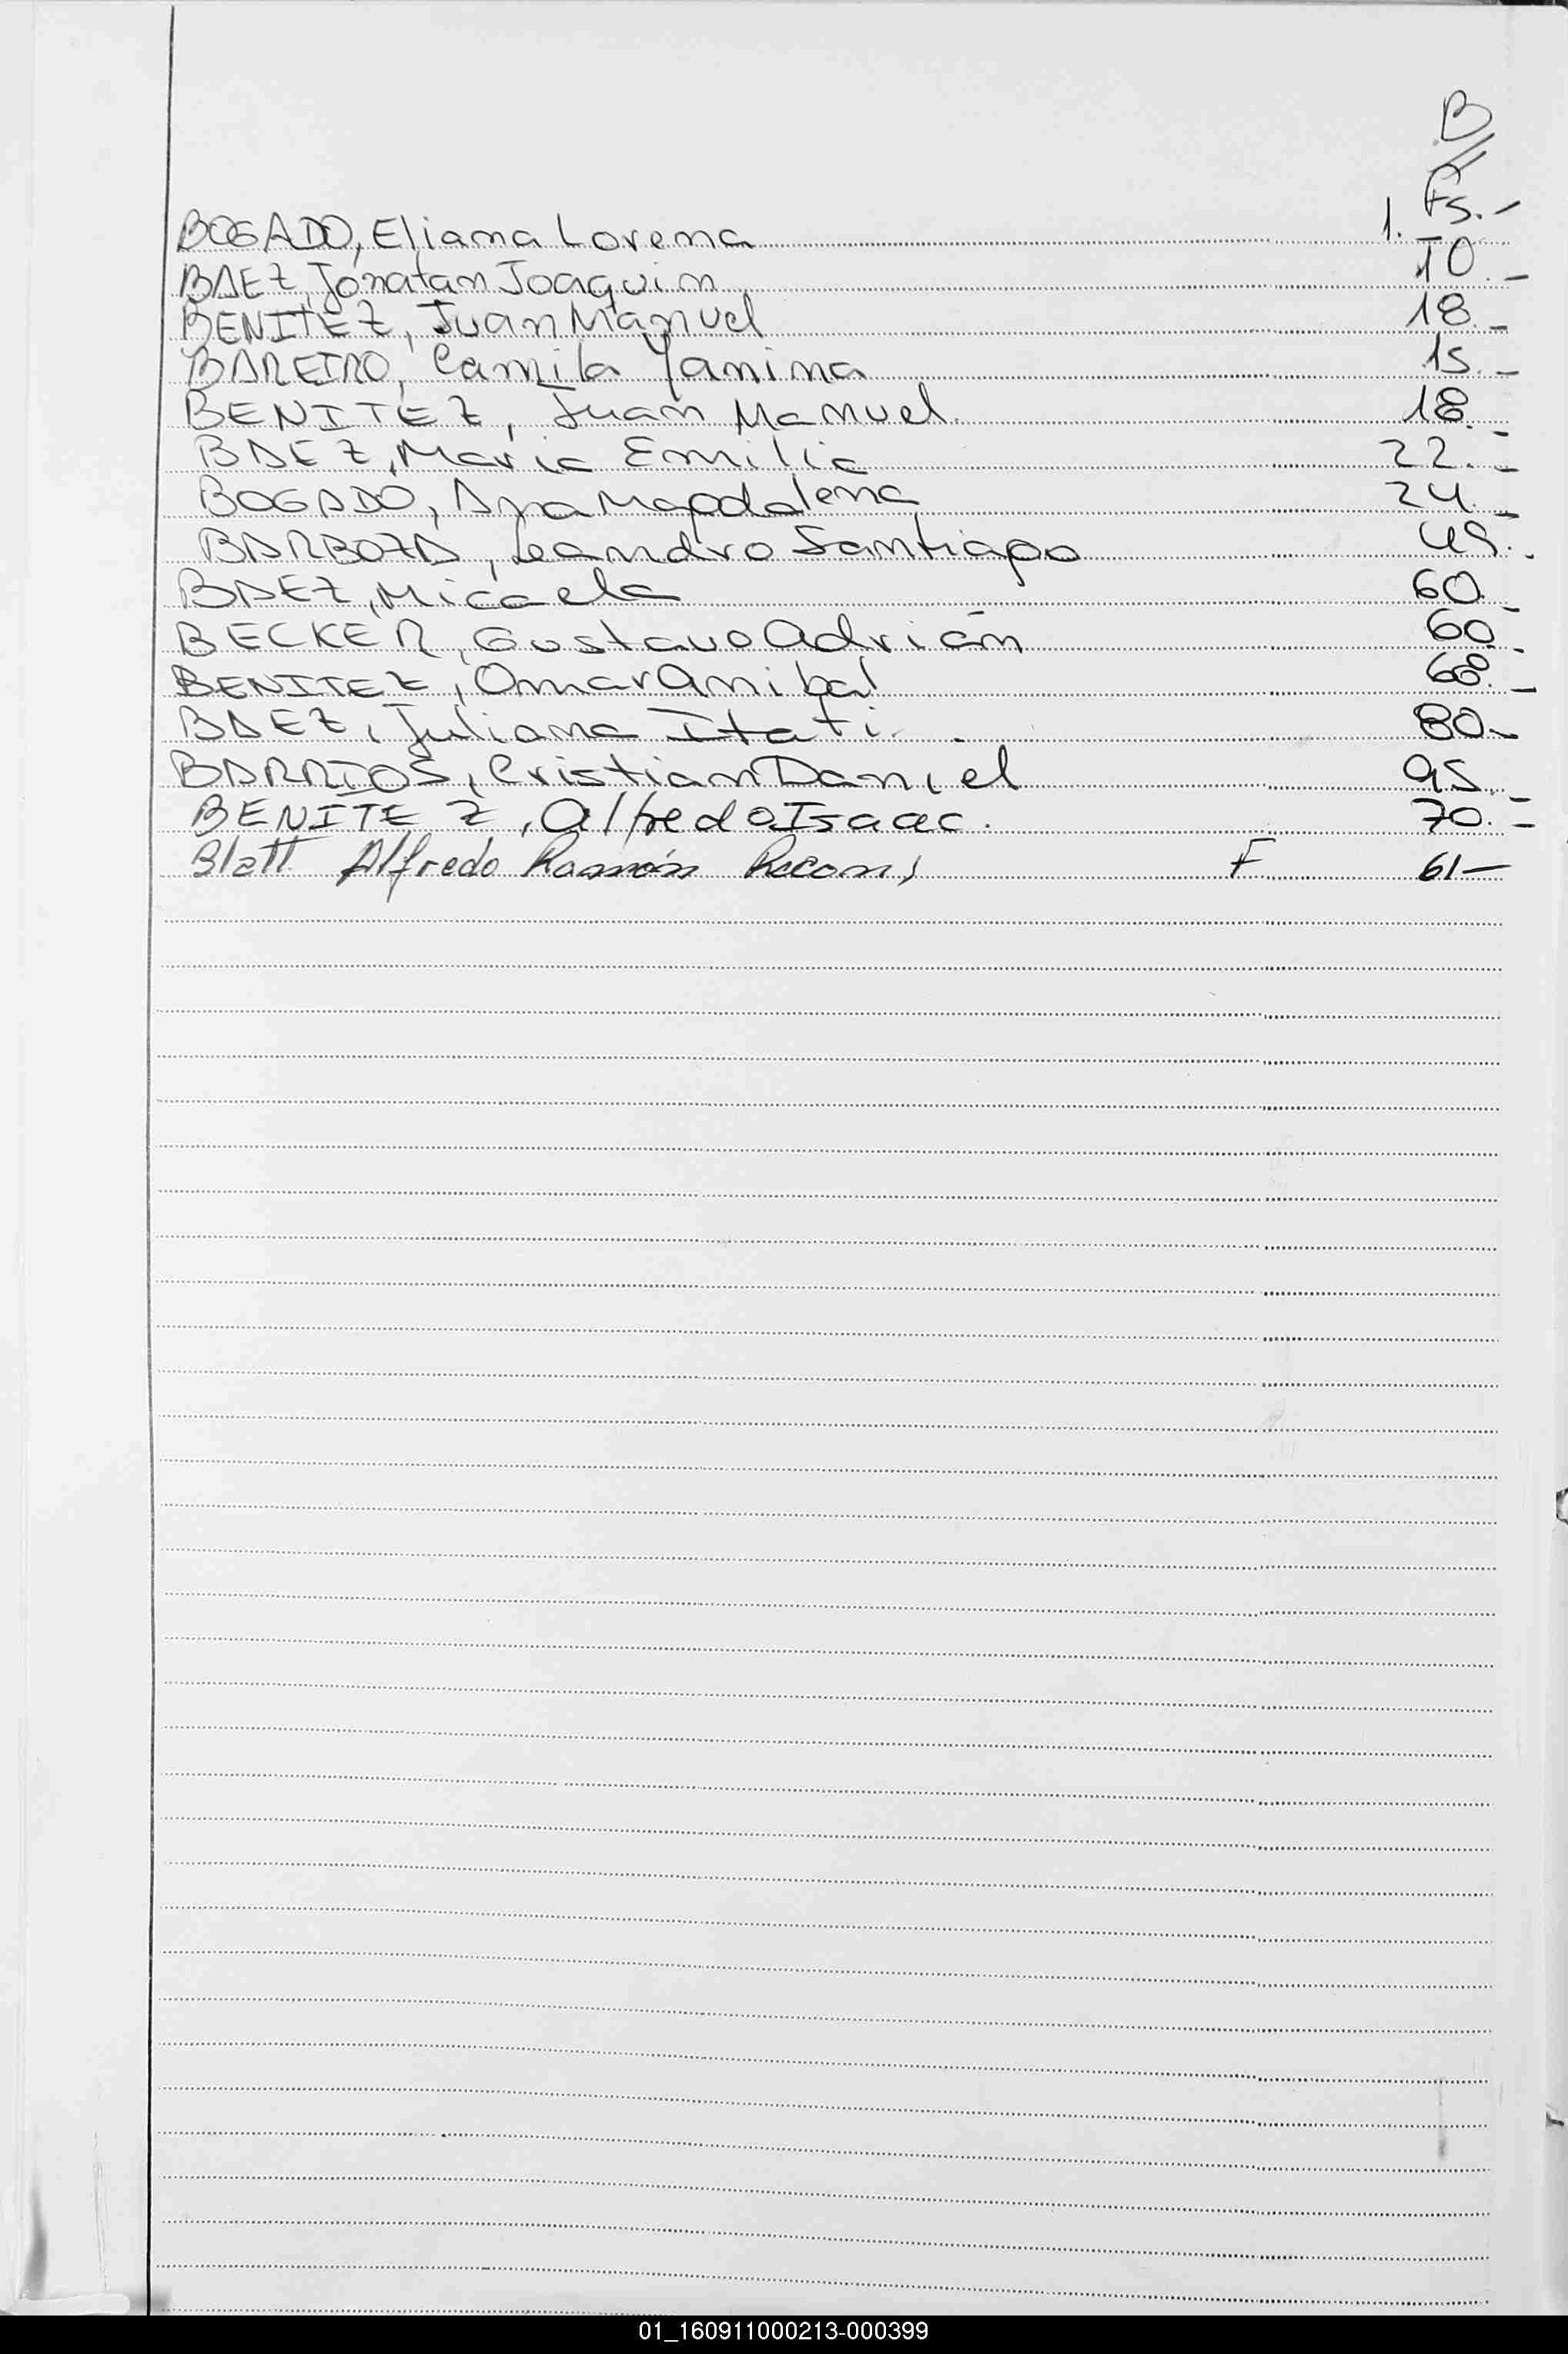 B
Fs.-
BOGADO, Eliana Lorena 1.
BAEZ, Jonatan Joaquin 10.-
BENITEZ, Juan Manuel 18.-
BAREIRO, Camila Yanina 15.-
BENITEZ, Juan Manuel. 18.-
BAEZ, Maria Emilia 22.-
BOGADO, Ana Magdalena 24.-
BARBOZA, Leandro Santiago 49.-
BAEZ, Micaela 60.-
BECKER, Gustavo Adrián 60.-
BENITEZ, Omar Anibal 68.-
BAEZ, Juliana Itati. 80.-
BARRIOS, Cristian Daniel 95.-
BENITEZ, Alfredo Isaac. 70.-
Blatt Alfredo Ramón Recon, F 61-
01_160911000213-000399